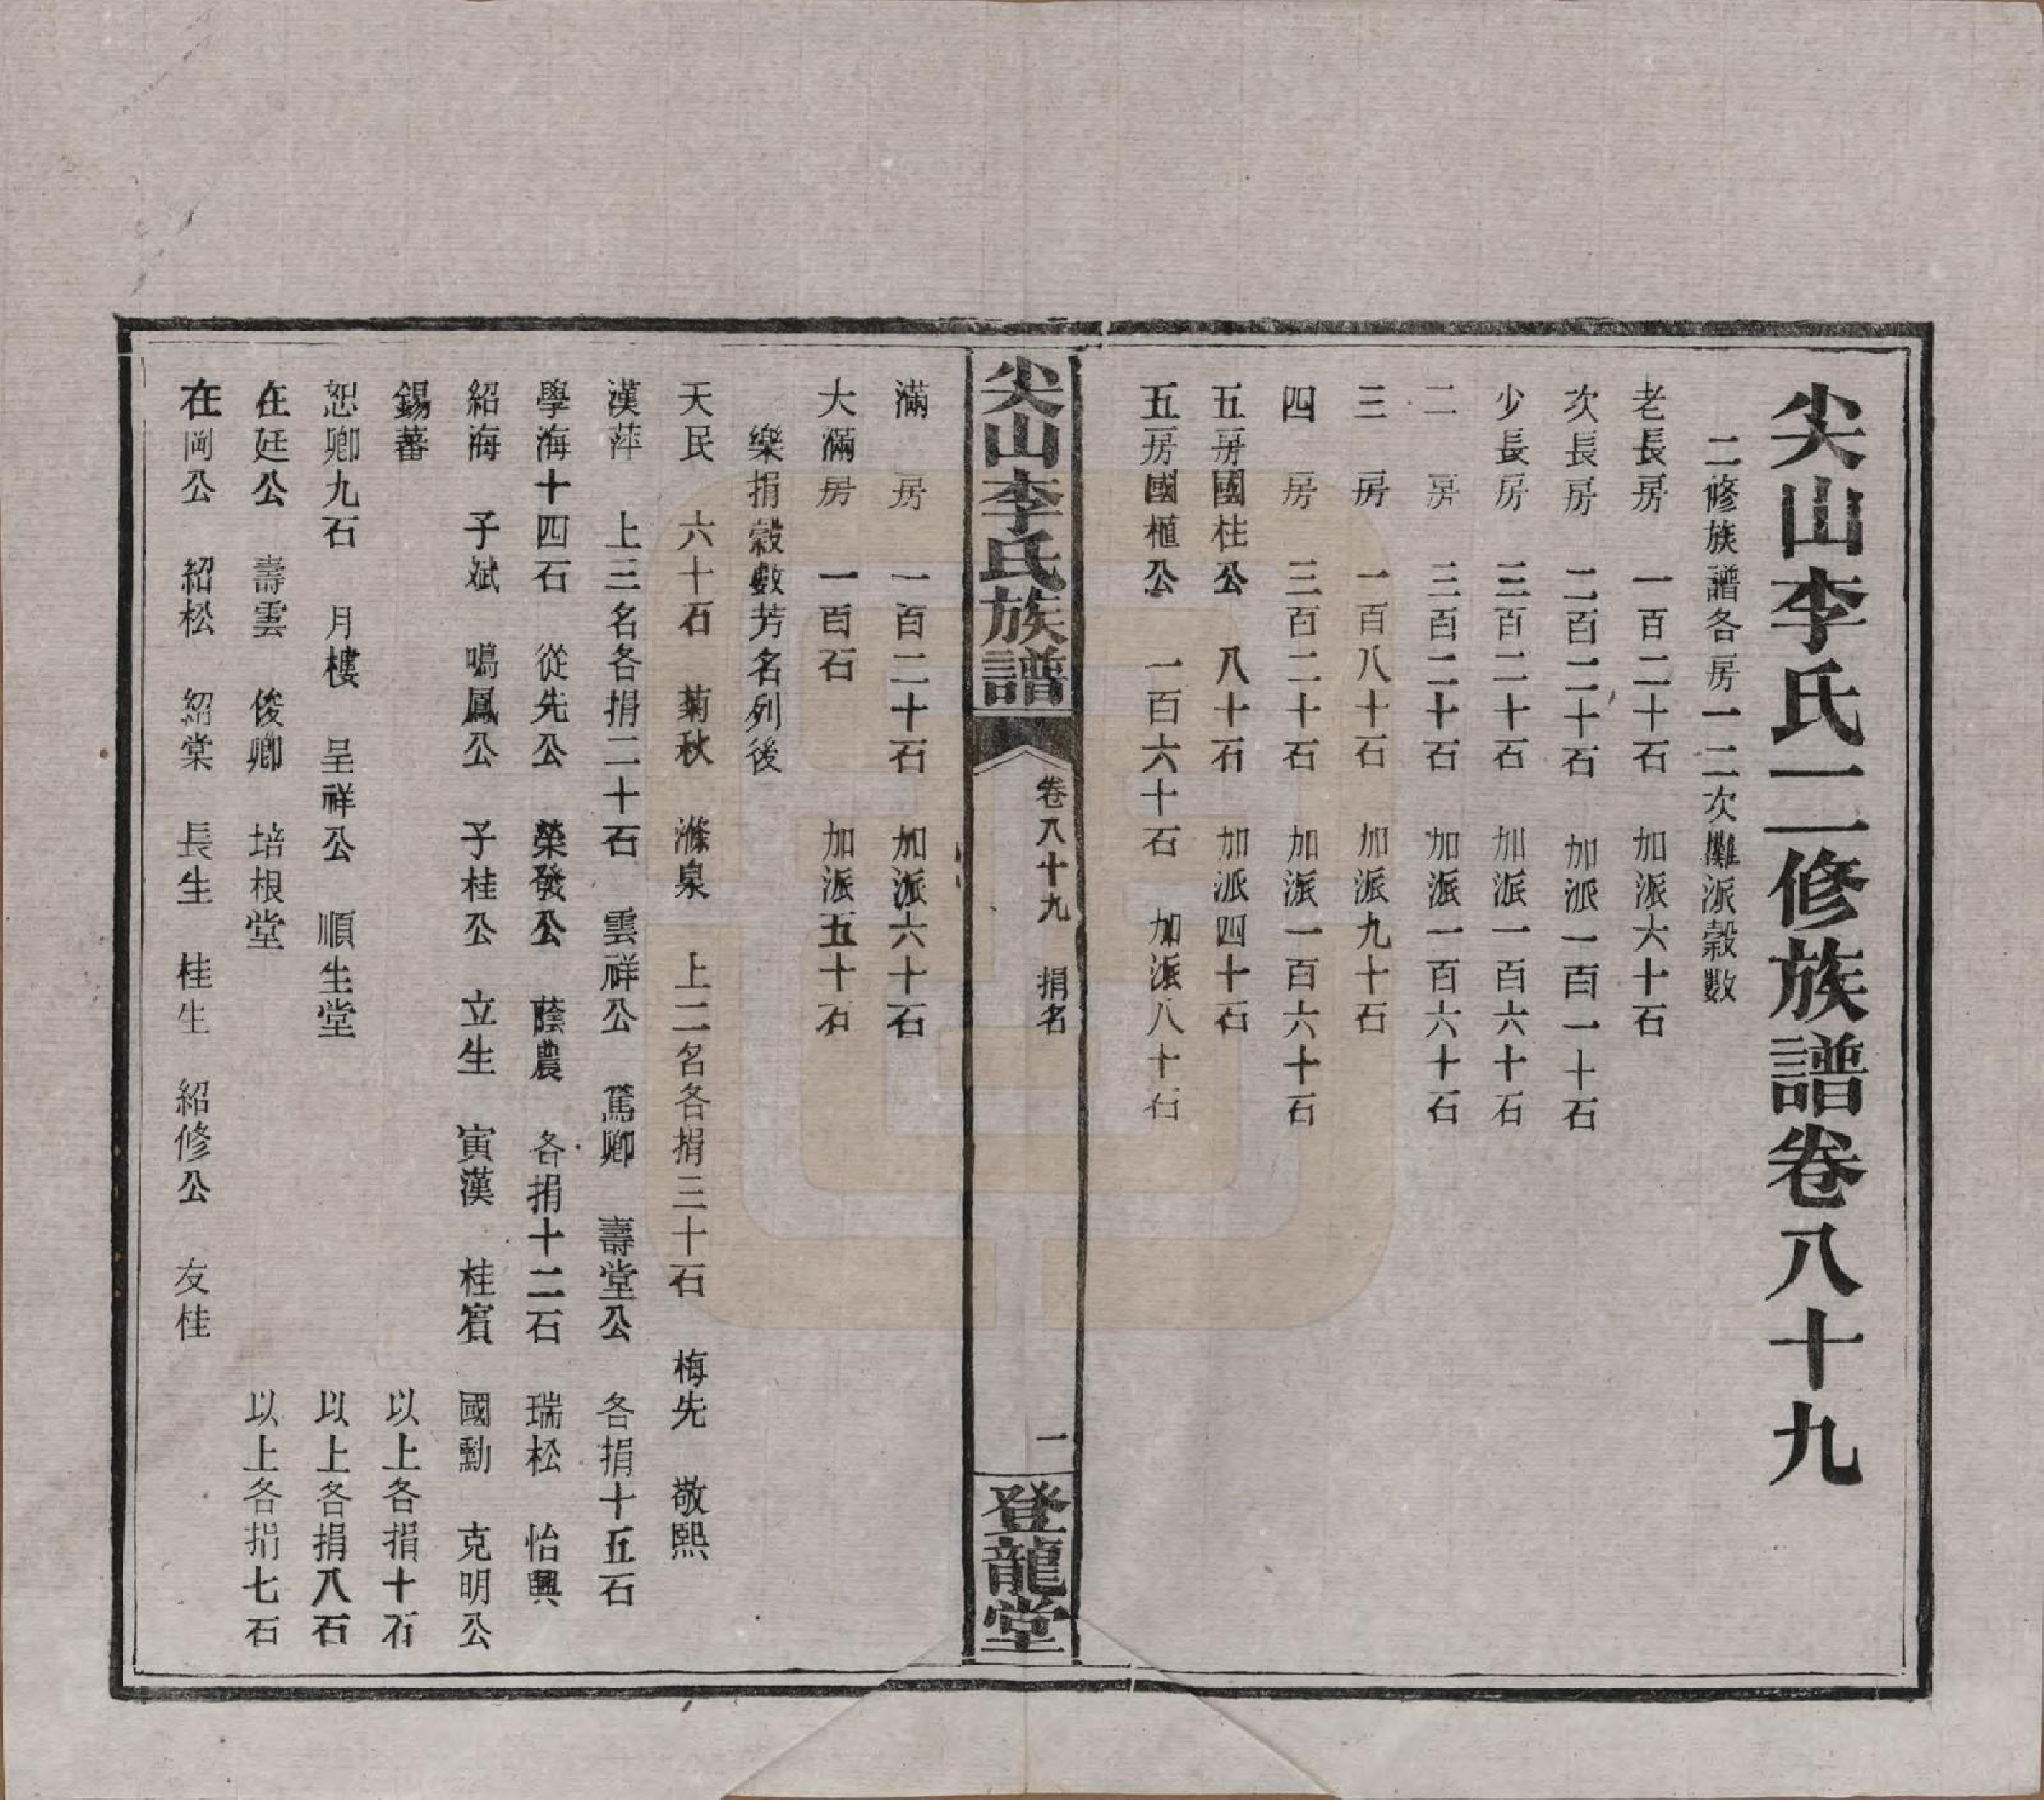 尖山李氏二修族譜卷八十九
二修族譜各房一二次攤派穀數
老長房 一百二十石 加派六十石
次長房 二百二十石 加派一百一十石
少長房 三百二十石 加派一百六十石
二房 三百二十石 加派一百六十石
三房 一百八十石 加派九十石
四房 三百二十石 加派一百六十石
五房國柱公 八十石 加派四十石
五房國植公 一百六十石 加派八十石
尖山李氏族譜 卷八十九 捐名 一 登龍堂
滿房 一百二十石 加派六十石
大滿房 一百石 加派五十石
樂捐穀數芳名列後
天民 六十石 菊秋 滌泉 上二名各捐三十石 梅先 敬熙
漢萍 上三名各捐二十石 雲祥公 篤卿 壽堂公 各捐十五石
學海十四石 從先公 榮發公 蔭農 各捐十二石 瑞松 怡興
紹海 子斌 鳴鳳公 子桂公 立生 寅漢 桂賓 國勳 克明公
錫蕃 以上各捐十石
恕卿九石 月樓 呈祥公 順生堂 以上各捐八石
在廷公 壽雲 俊卿 培根堂 以上各捐七石
在岡公 紹松 紹棠 長生 桂生 紹修公 友桂